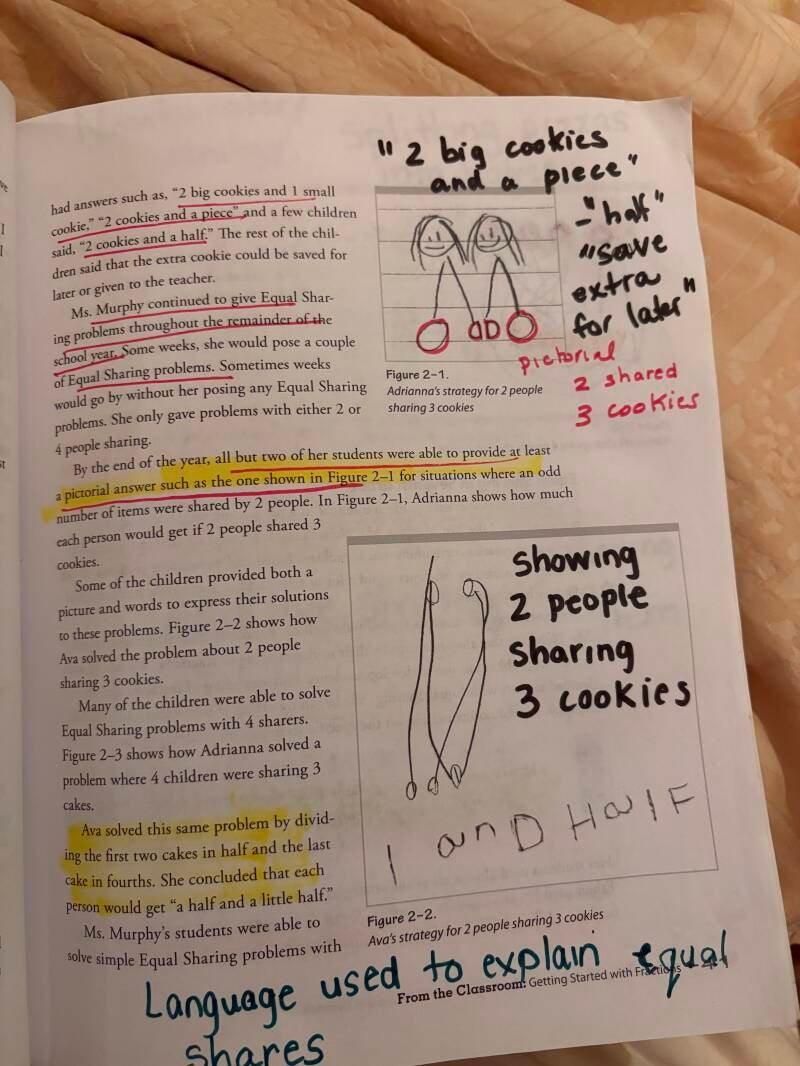 "2 big cookies
and a piece"
-"half"
"save
extra
for later"
had answers such as, “2 big cookies and 1 small
cookie,” “2 cookies and a piece” and a few children
said, “2 cookies and a half.” The rest of the chil-
dren said that the extra cookie could be saved for
later or given to the teacher.
Ms. Murphy continued to give Equal Shar-
ing problems throughout the remainder of the
school year. Some weeks, she would pose a couple
of Equal Sharing problems. Sometimes weeks
would go by without her posing any Equal Sharing
problems. She only gave problems with either 2 or
4 people sharing.
pictorial
2 shared
3 cookies
Figure 2–1.
Adrianna’s strategy for 2 people
sharing 3 cookies
By the end of the year, all but two of her students were able to provide at least
a pictorial answer such as the one shown in Figure 2–1 for situations where an odd
number of items were shared by 2 people. In Figure 2–1, Adrianna shows how much
each person would get if 2 people shared 3
cookies.
Some of the children provided both a
picture and words to express their solutions
to these problems. Figure 2–2 shows how
Ava solved the problem about 2 people
sharing 3 cookies.
Many of the children were able to solve
Equal Sharing problems with 4 sharers.
Figure 2–3 shows how Adrianna solved a
problem where 4 children were sharing 3
cakes.
Ava solved this same problem by divid-
ing the first two cakes in half and the last
cake in fourths. She concluded that each
person would get “a half and a little half.”
Ms. Murphy’s students were able to
solve simple Equal Sharing problems with
showing
2 people
sharing
3 cookies
1 anD HalF
Figure 2–2.
Ava’s strategy for 2 people sharing 3 cookies
Language used to explain equal
shares
From the Classroom: Getting Started with Fractions